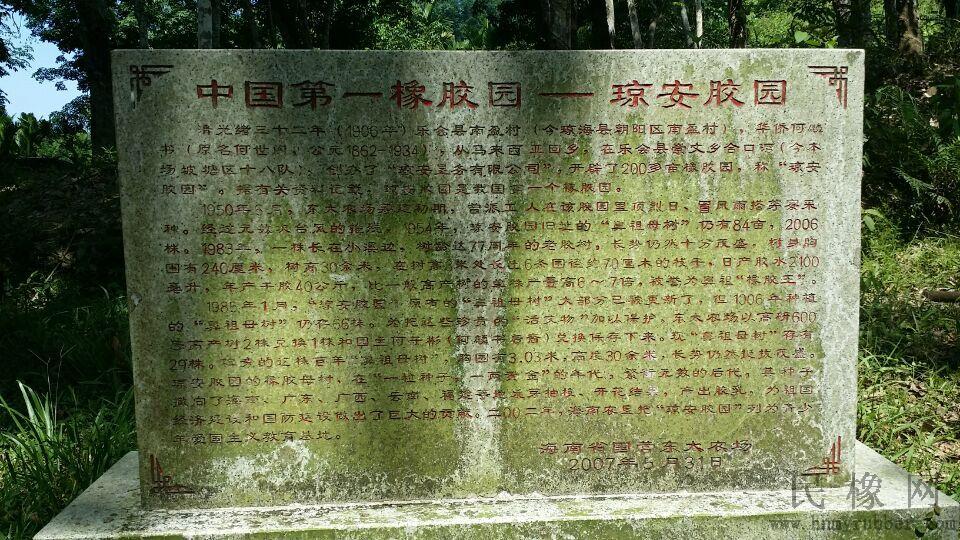 中国第一橡胶园 — 琼安胶园
清光绪三十二年（1906年）乐会县南盈村（今琼海县朝阳区南盈村），华侨何麟
书（原名何世阁，公元1862-1934），从马来西亚回乡，在乐会县崇文乡合口湾（今本
场坡塘区十八队），创办了"琼安垦务有限公司"，开辟了200多亩橡胶园，称"琼安
胶园"。据有关资料记载，琼安胶园是我国第一个橡胶园。
1950年 月，东太农场 建初期，曾派工人在该胶园里顶烈日、冒风雨搭芳安采
种。经过无数次台风的摧残，1954年，琼安胶园旧址的"真祖母树"仍有84亩，2006
株。1983年，一株长在小溪边，树龄达77周年的老胶树。长势仍然十分茂盛，树身胸
围有240厘米，树高30余米，在树高 米处长出6条围径约70厘米的枝干，日产胶水2100
毫升，年产干胶40公斤，比一般高产树的单株产量高6～7倍，被誉为真祖"橡胶王"。
1985年1月，"琼安胶园"原有的"真祖母树"大部分已被更新了，但1906年种植
的"真祖母树"仍存66株。为把这些珍贵的"活文物"加以保护，东太农场以高研600
号高产树2株兑换1株和园主何子彬（何麟书后裔）兑换保存下来。现"真祖母树"存有
29株。 的近株百年"真祖母树"，胸围有3.03米，高度30余米，长势仍然挺拔茂盛。
琼安胶园的橡胶母树，在"一粒种子，一两黄金"的年代，繁衍无数的后代，其种子
撒向了海南、广东、广西、云南、福建等地发芽抽枝、开花结果，产出胶乳，为祖国
经济建设和国防建设做出了巨大的贡献，二00二年，海南农垦把"琼安胶园"列为青少
年爱国主义教育基地。
海南省国营东太农场
2007年5月31日
民橡网